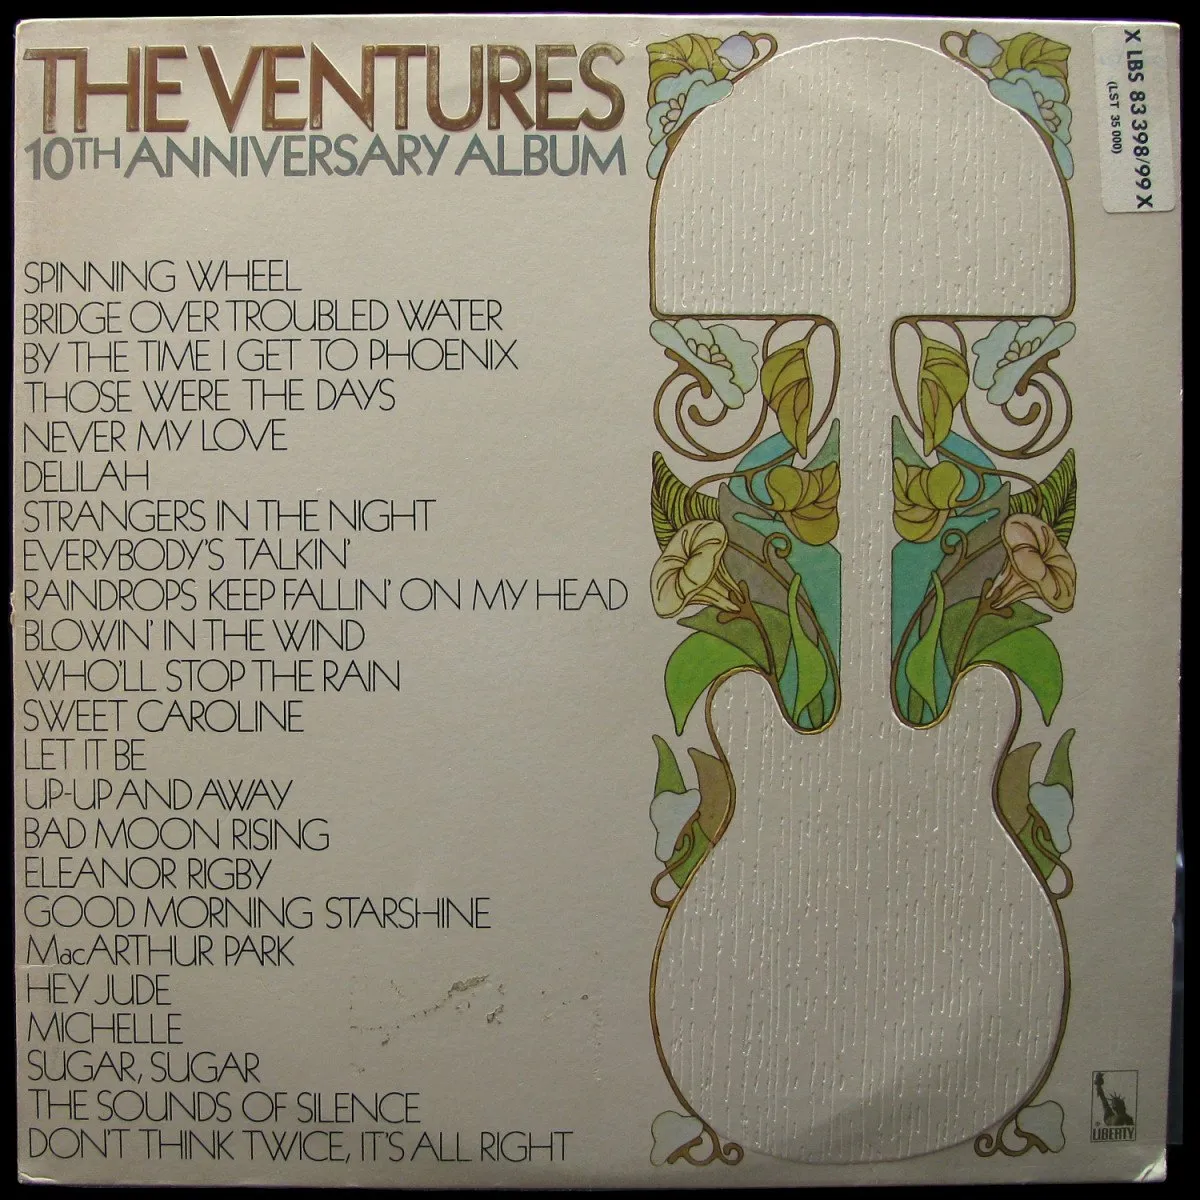 THE VENTURES
10TH ANNIVERSARY ALBUM
SPINNING WHEEL
BRIDGE OVER TROUBLED WATER
BY THE TIME I GET TO PHOENIX
THOSE WERE THE DAYS
NEVER MY LOVE
DELILAH
STRANGERS IN THE NIGHT
EVERYBODY'S TALKIN'
RAINDROPS KEEP FALLIN' ON MY HEAD
BLOWIN' IN THE WIND
WHO'LL STOP THE RAIN
SWEET CAROLINE
LET IT BE
UP-UP AND AWAY
BAD MOON RISING
ELEANOR RIGBY
GOOD MORNING STARSHINE
MacARTHUR PARK
HEY JUDE
MICHELLE
SUGAR, SUGAR
THE SOUNDS OF SILENCE
DON'T THINK TWICE, IT'S ALL RIGHT
X LBS 83 398/99 X
(LST 35 000)
LIBERTY